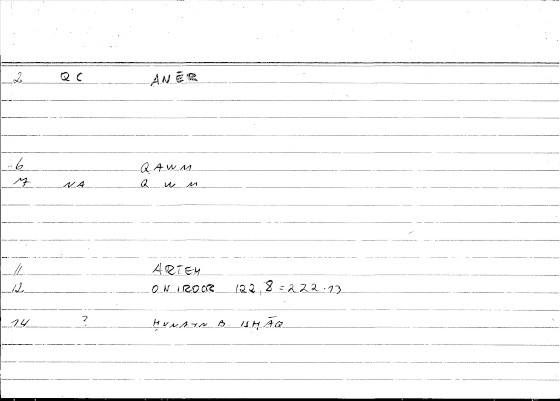 2 QC ANĒR
6 QAWM
7 NA QWM
11 ARTEM
12 ONIROCR 122,8 = 222.13
14 ? ḤUNAYN B. ISḤĀQ